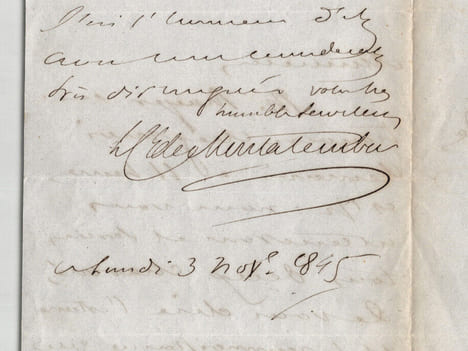 J'ai l'honneur d'être
avec une considération
très distinguée votre très
humble serviteur
Le Cte de Montalembert
ce lundi 3 novre 1845